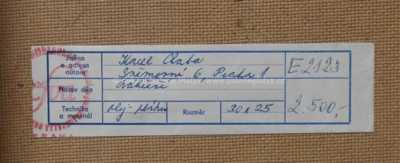 Jméno a adresa autora Karel Chaba E 2123
Sněmovní 6, Praha 1
Název díla Nábřeží 2.500,-
Technika a materiál olej - plátno Rozměr 30 x 25